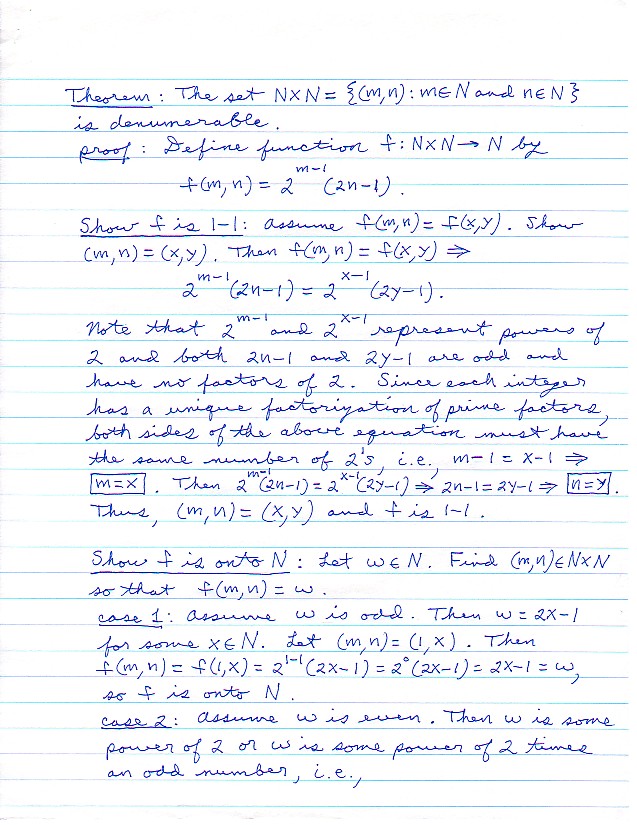 Theorem: The set N×N = {(m,n): m∈N and n∈N}
is denumerable.
proof: Define function f: N×N → N by
f(m,n) = 2^{m-1}(2n-1).
Show f is 1-1: assume f(m,n) = f(x,y). Show
(m,n) = (x,y). Then f(m,n) = f(x,y) ⇒
2^{m-1}(2n-1) = 2^{x-1}(2y-1).
Note that 2^{m-1} and 2^{x-1} represent powers of
2 and both 2n-1 and 2y-1 are odd and
have no factors of 2. Since each integer
has a unique factorization of prime factors,
both sides of the above equation must have
the same number of 2's, i.e., m-1 = x-1 ⇒
m=x. Then 2^{m-1}(2n-1) = 2^{x-1}(2y-1) ⇒ 2n-1=2y-1 ⇒ n=y.
Thus, (m,n) = (x,y) and f is 1-1.
Show f is onto N: Let w∈N. Find (m,n)∈N×N
so that f(m,n) = w.
case 1: assume w is odd. Then w = 2x-1
for some x∈N. Let (m,n) = (1,x). Then
f(m,n) = f(1,x) = 2^{1-1}(2x-1) = 2^0(2x-1) = 2x-1 = w,
so f is onto N.
case 2: assume w is even. Then w is some
power of 2 or w is some power of 2 times
an odd number, i.e.,